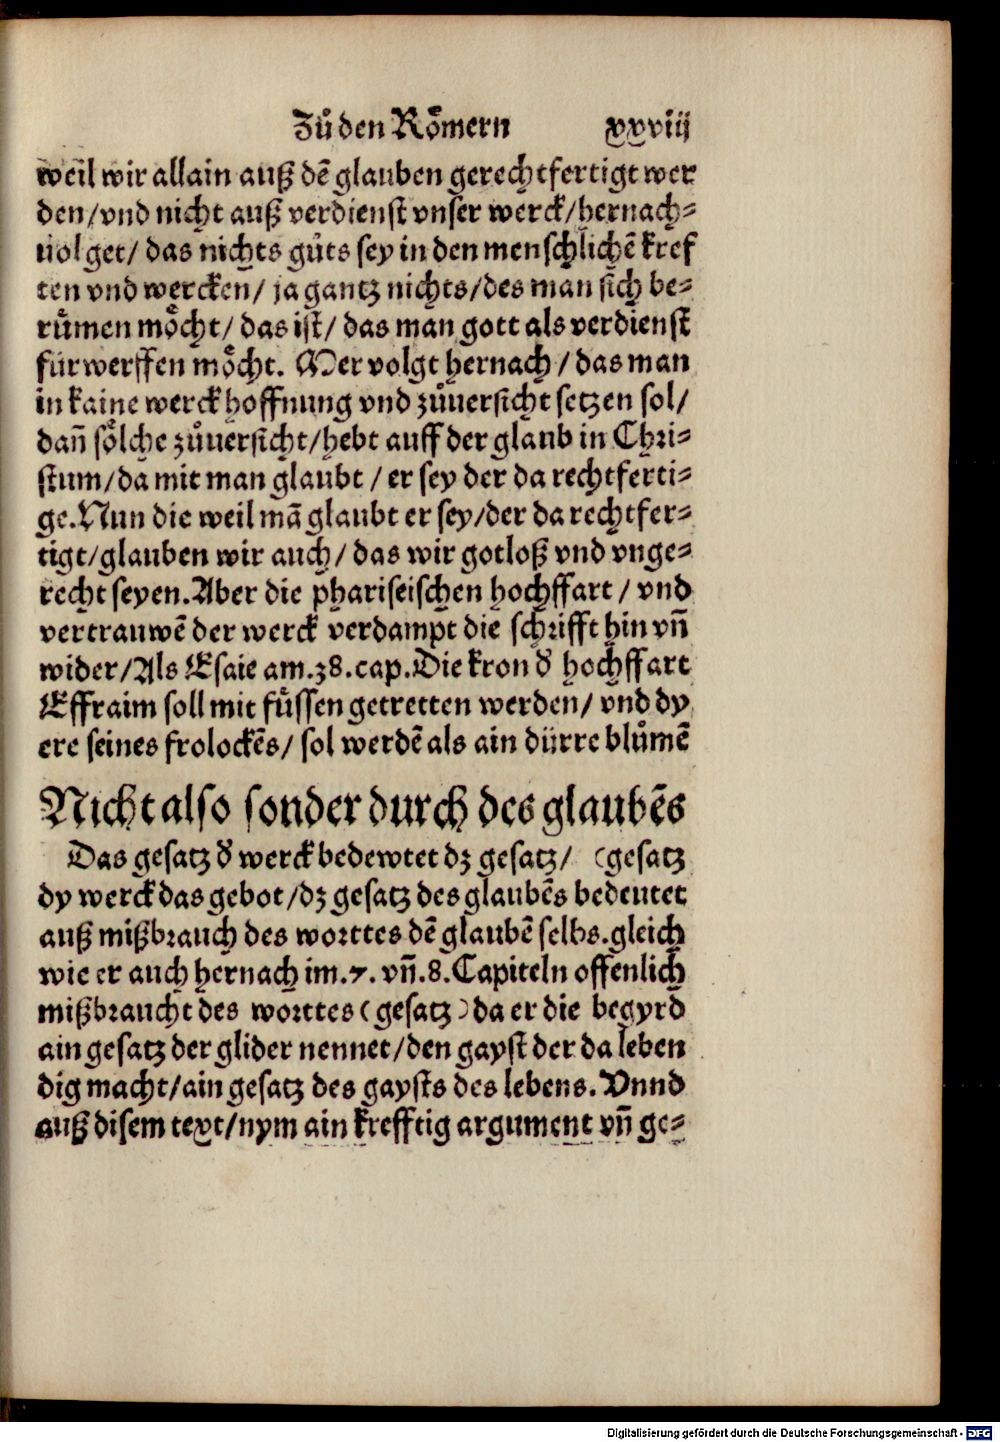 Zů den Roͤmern xxviij
weil wir allain auß dē glauben gerechtfertigt wer
den/vnd nicht auß verdienst vnser werck/hernach-
uolget/ das nichts gůts sey in den menschlichē kref
ten vnd wercken/ ja gantz nichts/des man sich be-
ruͤmen moͤcht/ das ist/ das man gott als verdienst
fürwerffen moͤcht. Mer volgt hernach / das man
in kaine werck hoffnung vnd zůuersicht setzen sol/
dañ soͤlche zůuersicht/hebt auff der glaub in Chri-
stum/da mit man glaubt / er sey der da rechtferti-
ge. Nun die weil mā glaubt er sey/der da rechtfer-
tigt/glauben wir auch/ das wir gotloß vnd vnge-
recht seyen. Aber die phariseischen hochffart / vnd
vertrauwē der werck verdampt die schrifft hin vñ
wider/Als Esaie am. 28. cap. Die kron d' hochffart
Effraim soll mit fuͤssen getretten werden/ vnd dy
ere seines frolockēs/ sol werdē als ain dürre bluͤmē
Nicht also sonder durch des glaubēs
Das gesatz d' werck bedewtet dz gesatz/ (gesatz
dy werck das gebot/dz gesatz des glaubēs bedeutet
auß mißbrauch des worttes dē glaubē selbs. gleich
wie er auch hernach im. 7. vñ. 8. Capiteln offenlich
mißbraucht des worttes (gesatz) da er die begyrd
ain gesatz der glider nennet/den gayst der da leben
dig macht/ain gesatz des gaysts des lebens. Vnnd
auß disem text/nym ain krefftig argument vñ ge-
Digitalisierung gefördert durch die Deutsche Forschungsgemeinschaft - DFG